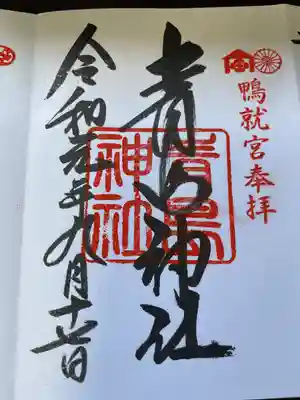 鴨就宮奉拝
青島神社
青島神社
令和元年九月十七日